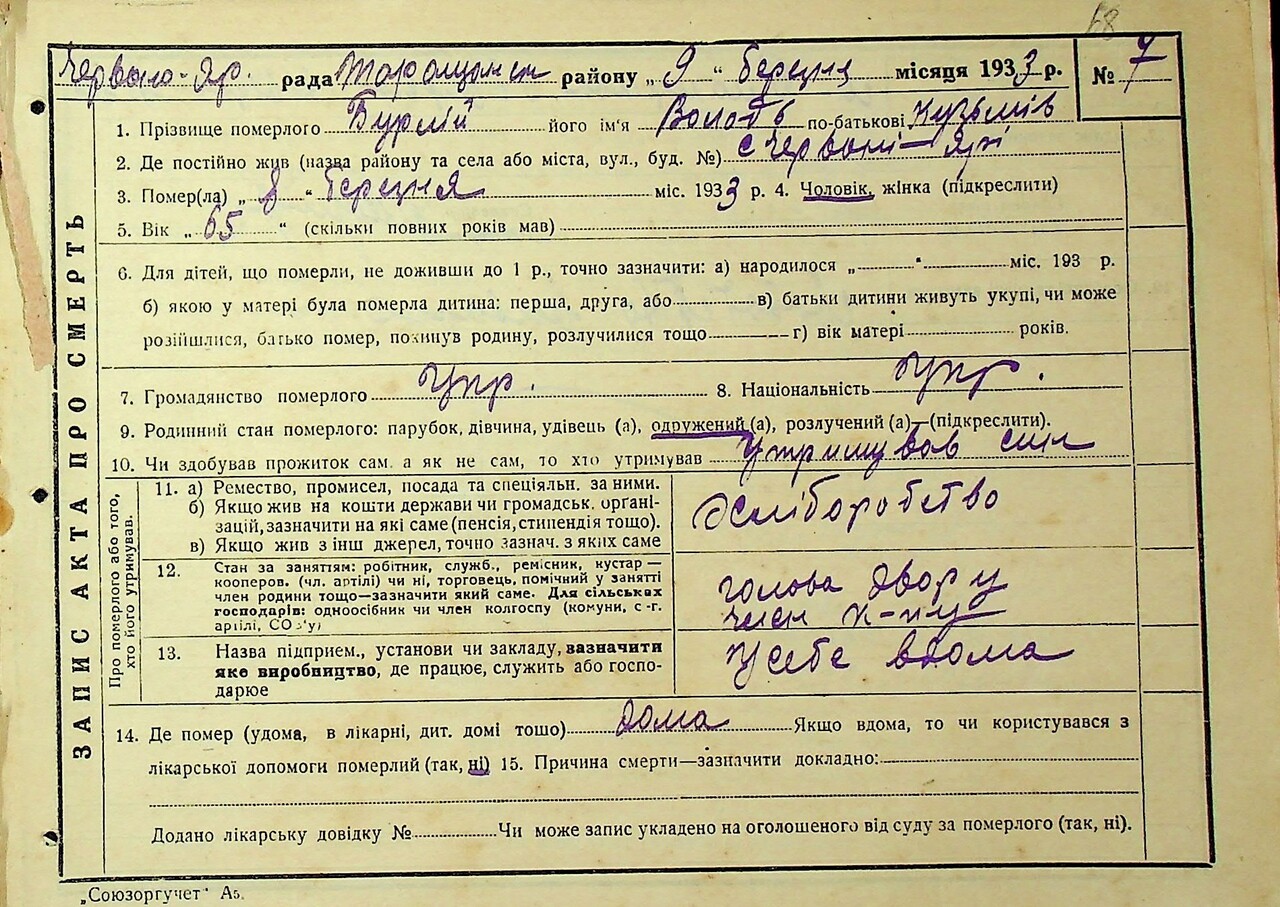 68
Червоно-Яр. рада Таращанськ району „ 9 “ березня місяця 1933 р. № 7
1. Прізвище померлого Бурлій його ім'я по-батькові Кузьмів
2. Де постійно жив (назва району та села або міста, вул., буд. №) с Червоні-Ярі
3. Помер(ла) „ 8 “ березня міс. 1933 р. 4. Чоловік, жінка (підкреслити)
5. Вік „ 65 “ (скільки повних років мав)
6. Для дітей, що померли, не доживши до 1 р., точно зазначити: а) народилося „ “ міс. 193 р.
б) якою у матері була померла дитина: перша, друга, або в) батьки дитини живуть укупі, чи може
розійшлися, батько помер, покинув родину, розлучилися тощо г) вік матері років.
7. Громадянство померлого Укр. 8. Національність Укр.
9. Родинний стан померлого: парубок, дівчина, удівець (а), одружений (а), розлучений (а)—(підкреслити).
10. Чи здобував прожиток сам, а як не сам, то хто утримував Утримував син
ЗАПИС АКТА ПРО СМЕРТЬ
Про померлого або того,
хто його утримував.
11. а) Ремество, промисел, посада та спеціяльн. за ними.
б) Якщо жив на кошти держави чи громадськ. органі-
зацій, зазначити на які саме (пенсія, стипендія тощо).
в) Якщо жив з інш джерел, точно зазнач. з яких саме
Хліборобство
12. Стан за заняттям: робітник, служб., ремісник, кустар—
кооперов. (чл. артілі) чи ні, торговець, помічний у занятті
член родини тощо—зазначити який саме. Для сільських
господарів: одноосібник чи член колгоспу (комуни, с-г.
артілі, СОЗ'у)
голова двору
член к-пу
13. Назва підприєм., установи чи закладу, вазначити
яке виробництво, де працює, служить або госпо-
дарює
У себе вдома
14. Де помер (удома, в лікарні, дит. домі тощо) дома Якщо вдома, то чи користувався з
лікарської допомоги померлий (так, ні) 15. Причина смерти—зазначити докладно:
Додано лікарську довідку № Чи може запис укладено на оголошеного від суду за померлого (так, ні).
„Союзоргучет“ А5.